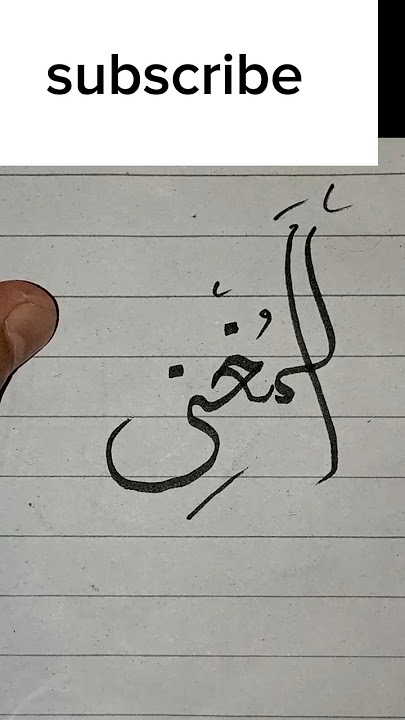 subscribe
اَلْمُغْنِى